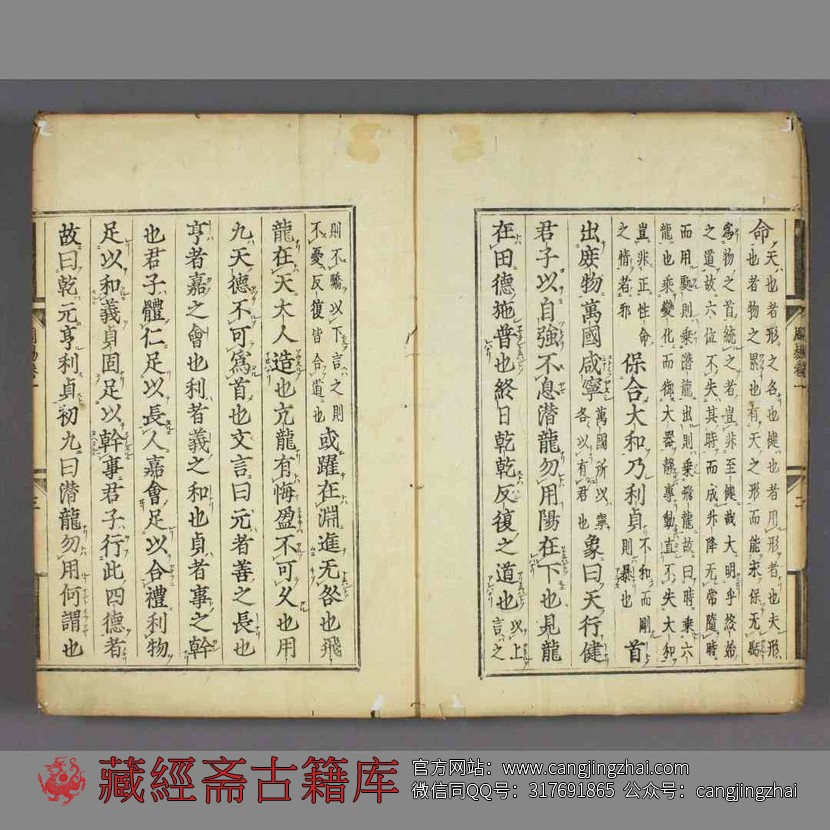 命天也者形之名也健也者用形者也夫形
也者物之累也有天之形而能永保无虧
爲物之首統之者豈非至健哉大明乎終始
之道故六位不失其時而成升降无常隨時
而用處則乘潛龍出則乘飛龍故曰時乘六
龍也乘變化而御大器靜專動直不失大和
豈非正性命
之情者邪
保合大和乃利貞
不和而剛
則暴也
首
出庶物萬國咸寧
萬國所以寧
各以有君也
象曰天行健
君子以自強不息潛龍勿用陽在下也見龍
在田德施普也終日乾乾反復之道也
以上
言之
則不驕以下言之則
不憂反復皆合道也
或躍在淵進无咎也飛
龍在天大人造也亢龍有悔盈不可久也用
九天德不可爲首也文言曰元者善之長也
亨者嘉之會也利者義之和也貞者事之幹
也君子體仁足以長人嘉會足以合禮利物
足以和義貞固足以幹事君子行此四德者
故曰乾元亨利貞初九曰潛龍勿用何謂也
藏經斋古籍库
官方网站：www.cangjingzhai.com
微信同QQ号：317691865 公众号：cangjingzhai